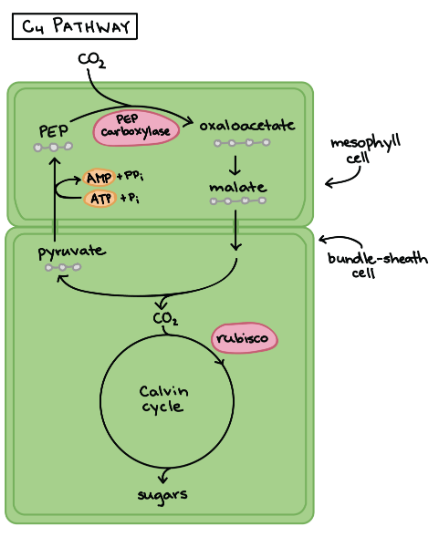 C4 PATHWAY
CO2
PEP
PEP
carboxylase
oxaloacetate
mesophyll
cell
AMP + PPi
ATP + Pi
malate
pyruvate
bundle-sheath
cell
CO2
rubisco
Calvin
cycle
sugars